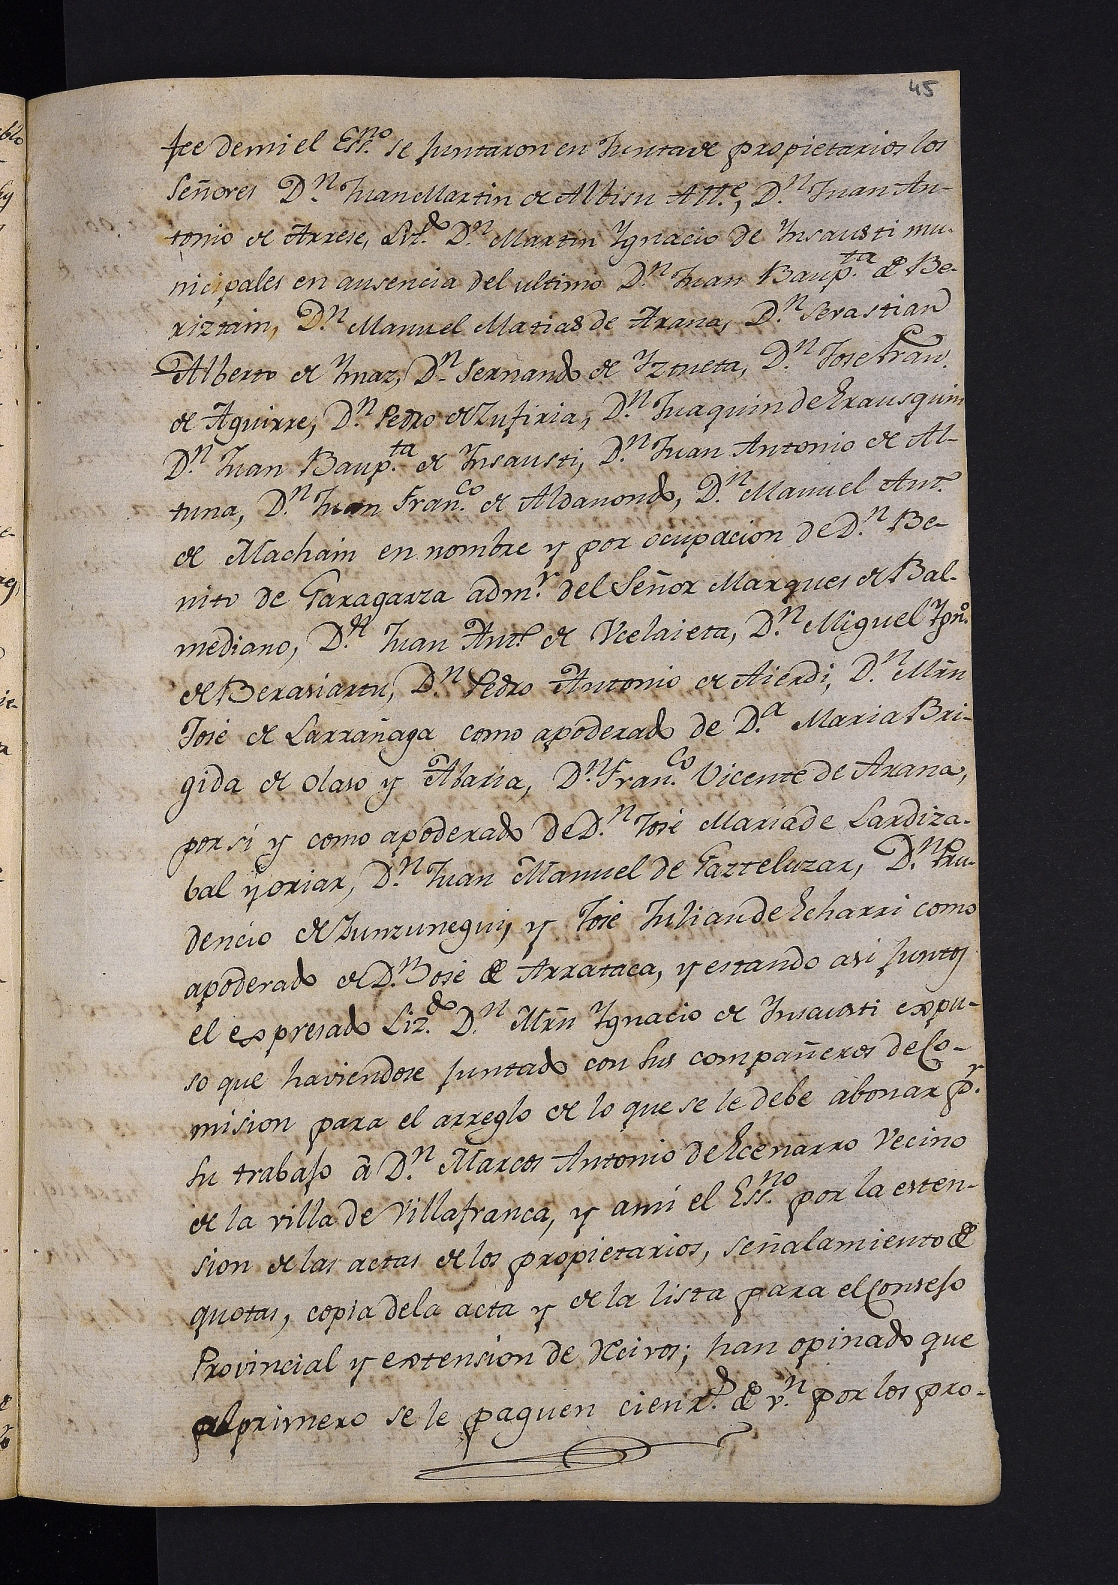 45
fee demi el Ess.no se juntaron en Junta de propietarios los
Señores D.n Juan Martin de Albisu Alt.e, D.n Juan An-
tonio de Arrese, Liz.do D.n Martin Ygnacio de Ynsausti mu-
nicipales en ausencia del ultimo D.n Juan Baup.ta de Be-
riztain, D.n Manuel Matias de Arana, D.n Sevastian
Alberto de Ymaz, D.n Fernando de Yztueta, D.n Jose Fran.co
de Aguirre, D.n Pedro de Zufiria, D.n Juaquin de Erausquin
D.n Juan Baup.ta de Ynsausti, D.n Juan Antonio de Al-
tuna, D.n Juan Fran.co de Aldanondo, D.n Manuel Ant.o
de Machain en nombre y por ocupacion de D.n Be-
nito de Garagarza adm.r del Señor Marques de Bal-
mediano, D.n Juan Ant.o de Ucelaieta, D.n Miguel Ygn.o
de Berasiartu, D.n Pedro Antonio de Aierdi, D.n Mrn
José de Larrañaga como apoderado de D.a Maria Bri-
gida de Olaso y Abaria, D.n Fran.co Vicente de Arana,
por si y como apoderado de D.n José Maria de Lardiza-
bal y oriar, D.n Juan Manuel de Gazteluzar, D.n Pru-
dencio de Zunzunegui, y José Julian de Echarri como
apoderado de D.n José de Arrataca, y estando asi juntos
el expresado Liz.do D.n Mrn Ygnacio de Ynsausti expu-
so que haviendose juntado con sus compañeros de Co-
mision para el arreglo de lo que se le debe abonar p.r
su trabajo á D.n Marcos Antonio de Ecenarro Vecino
de la villa de Villafranca, y ami el Ess.no por la esten-
sion de las actas de los propietarios, señalamiento de
quotas, copia dela acta y de la lista para el Consejo
Provincial y extension de Reivos; han opinado que
al primero se le paguen cien r.s de v.n por los pro-